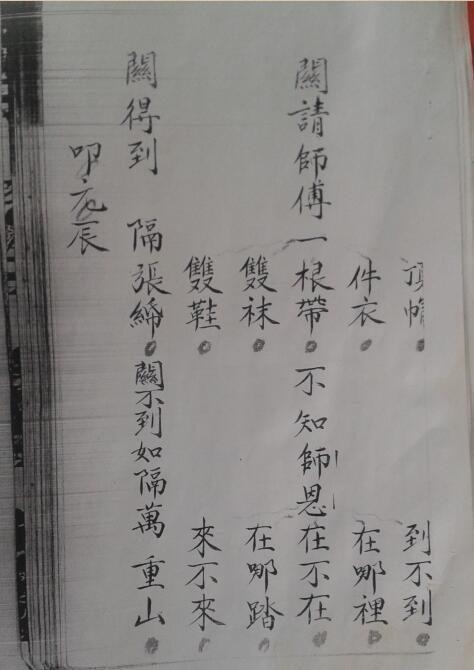 頂帽 到不到
件衣 在哪裡
關請師傅一根帶 不知師恩在不在
雙袜 在哪踏
雙鞋 來不來
關得到 隔張締 關不到如隔萬重山
叩元辰